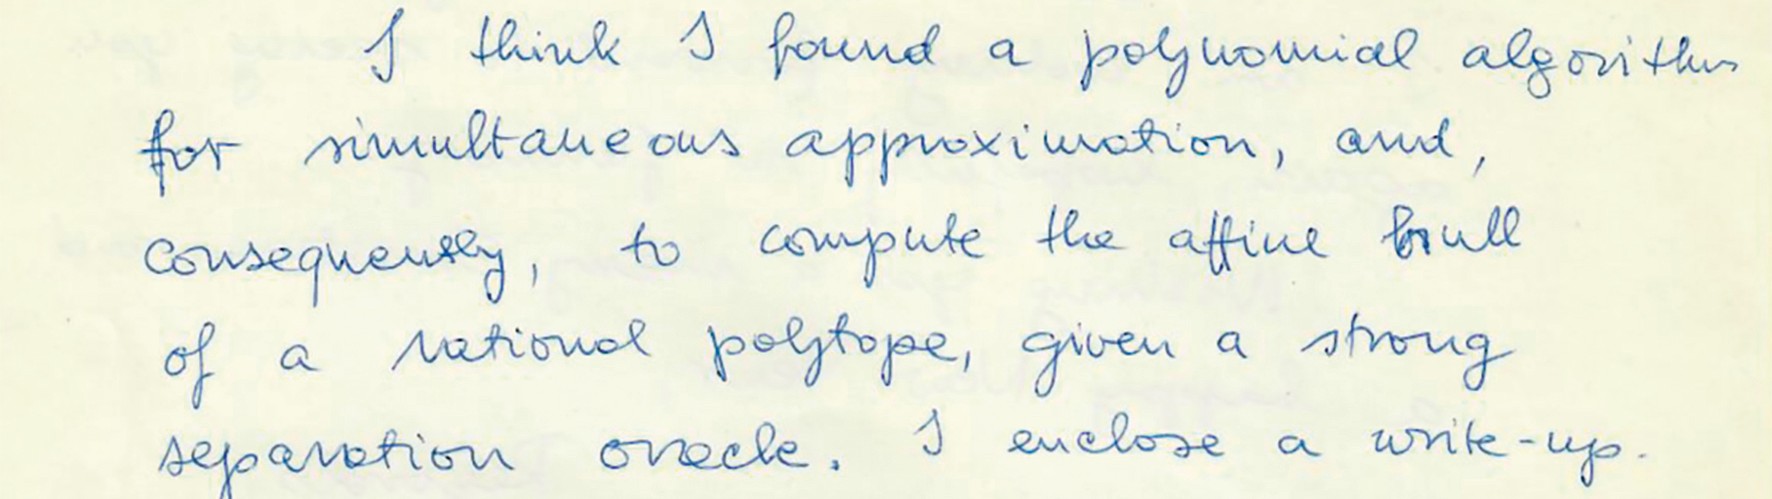 I think I found a polynomial algorithm
for simultaneous approximation, and,
consequently, to compute the affine hull
of a rational polytope, given a strong
separation oracle. I enclose a write-up.